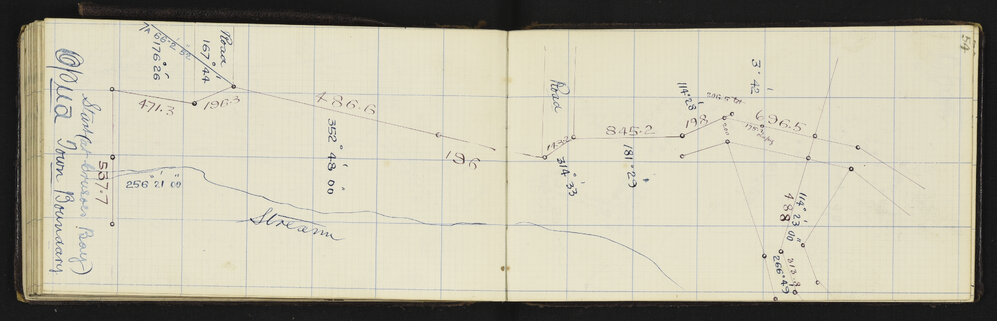 54
Opua Town Boundary
557.7
256° 21' 00"
471.3
176° 26'
196.3
Road
167° 44'
486.6
352° 48' 00"
196
Stream
Road
314° 33'
845.2
181° 29'
114° 28'
198
200
3° 42'
696.5
114° 23' 00"
488
313.8
266° 49'